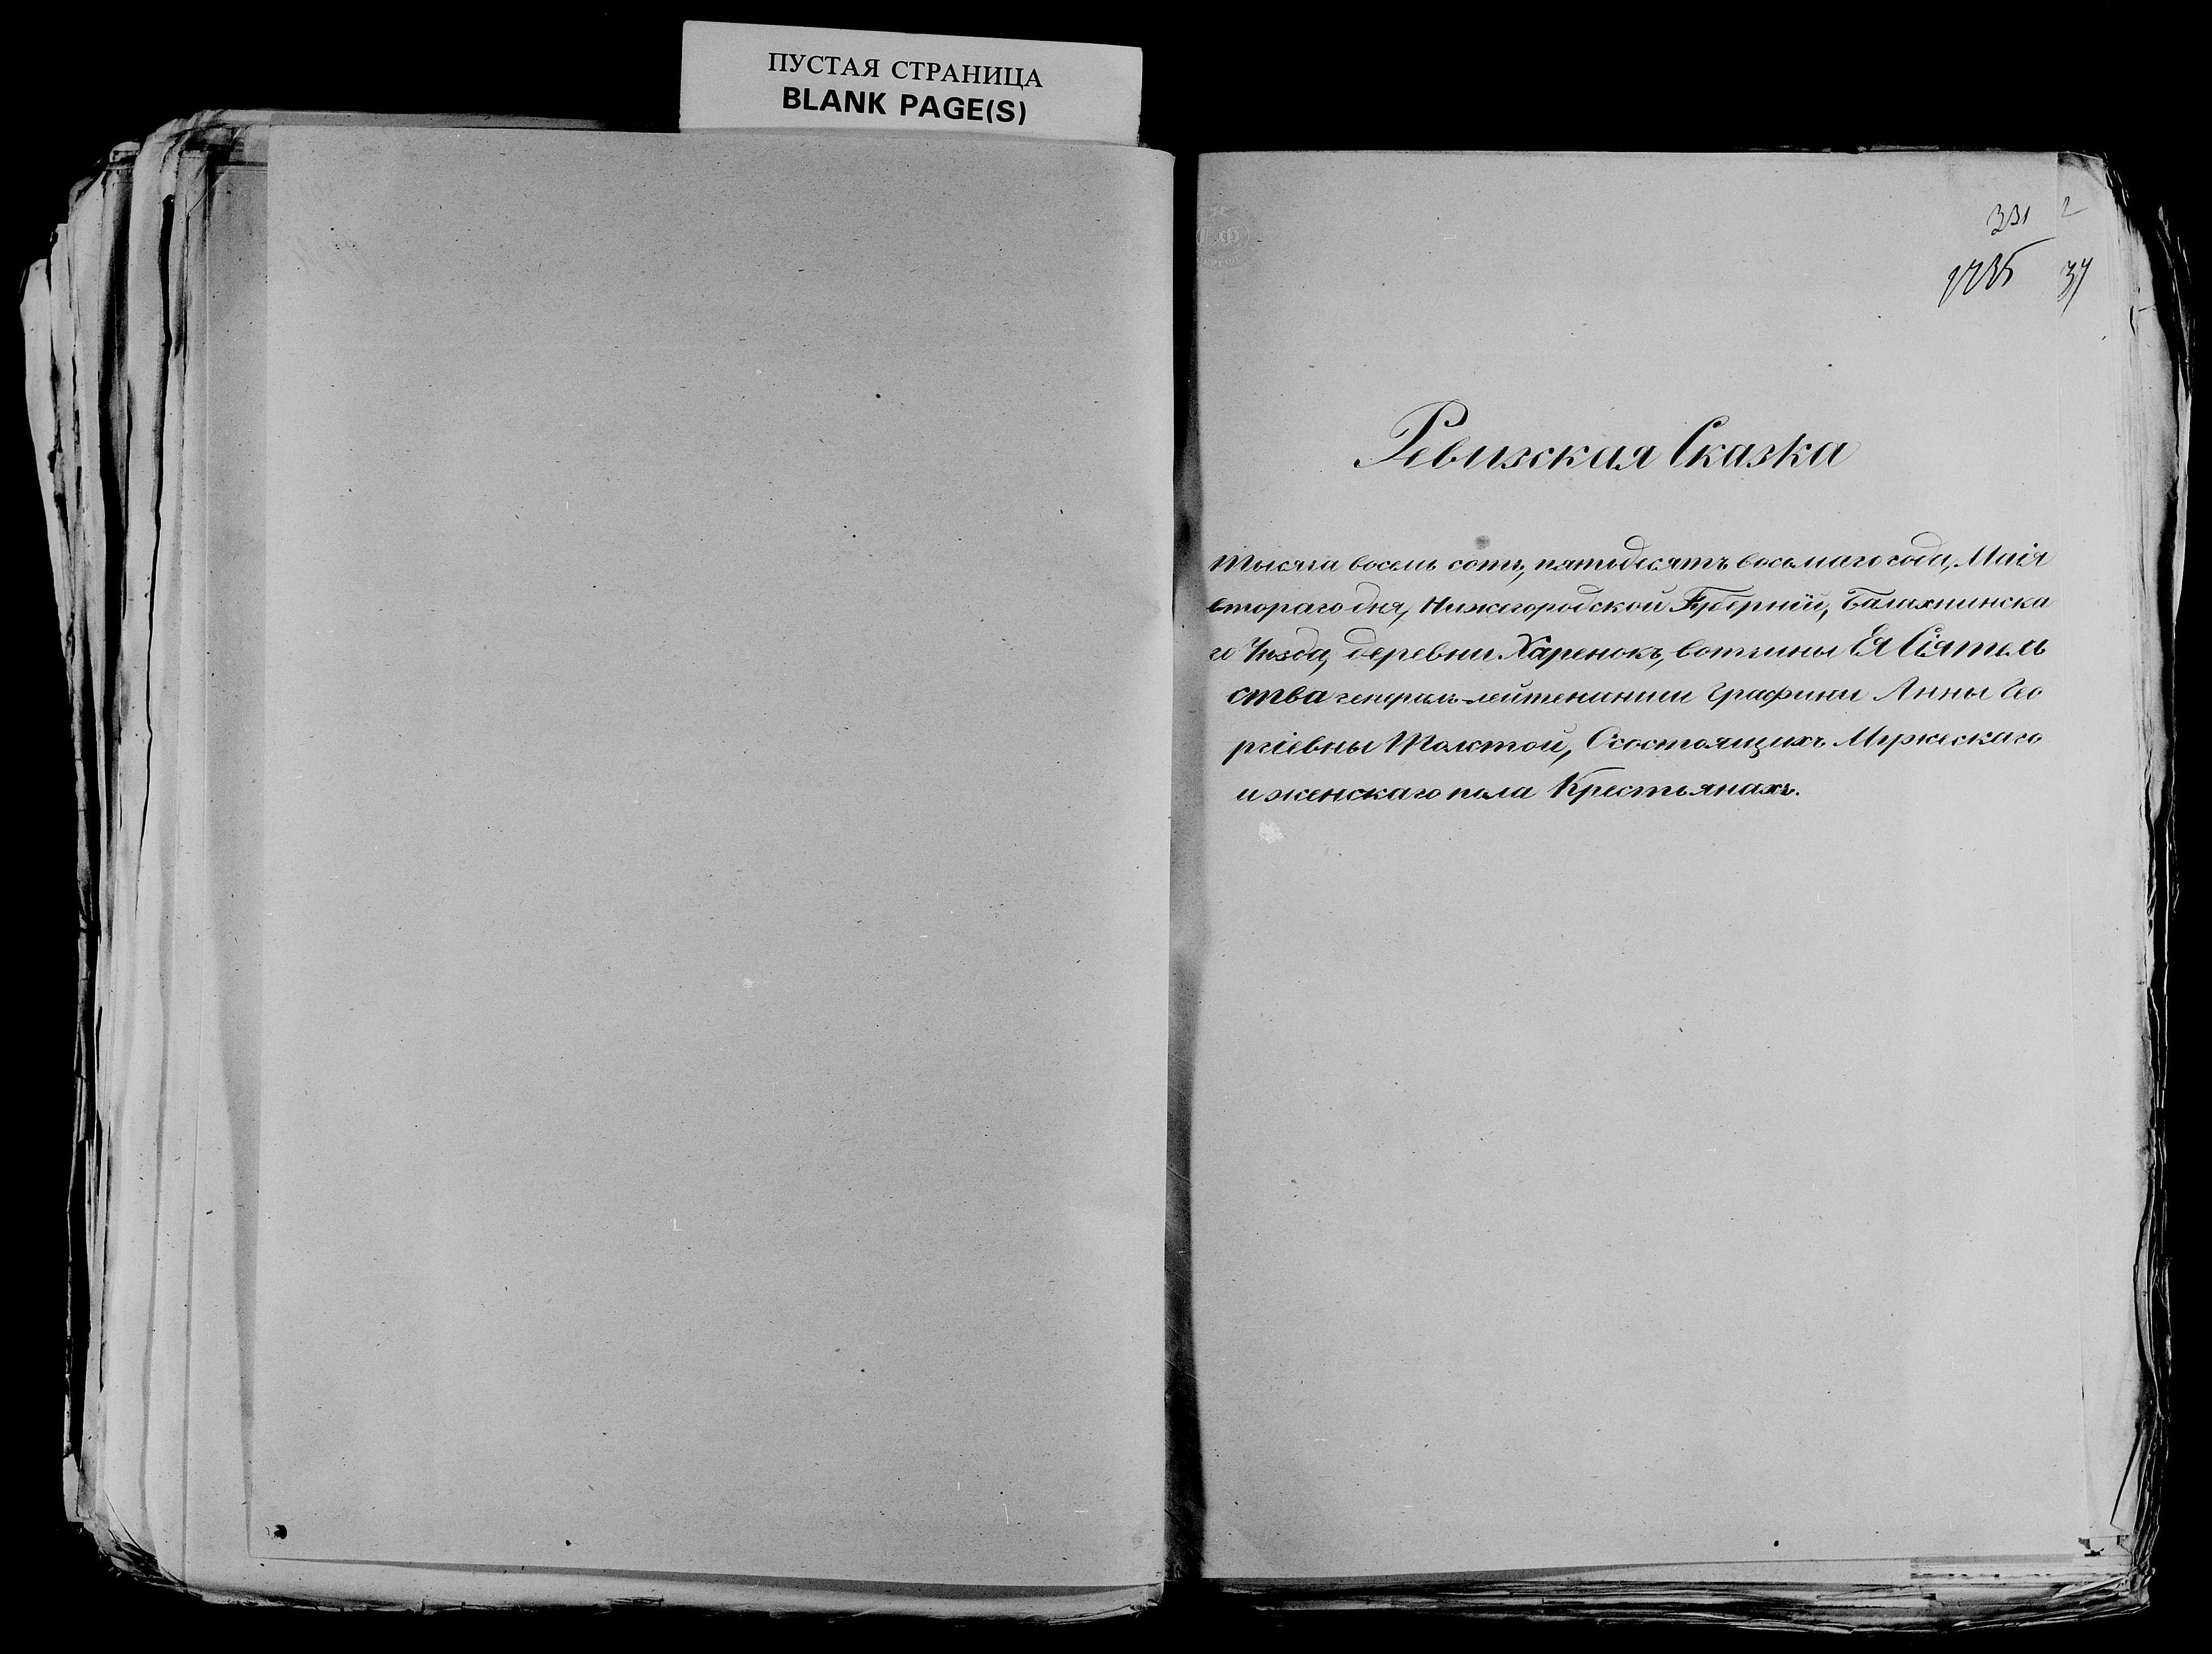 ПУСТАЯ СТРАНИЦА
BLANK PAGE(S)
331
37
Ревизская Сказка
тысяча восемь сотъ, пятьдесятъ восьмаго года, Маiя
втораго дня, Нижегородской Губернiи, Балахнинска
го Уѣзда, деревни Харенокъ, вотчины Ея Сiятель
ства генералъ-лейтенанши Графини Анны Гео
ргiевны Толстой, О состоящихъ Мужескаго
и женскаго пола Крестьянахъ.